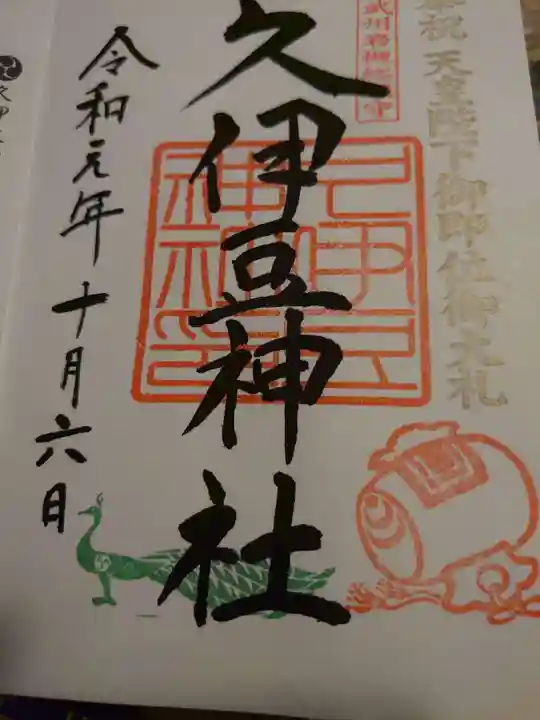 奉祝 天皇陛下御即位御大礼
武州岩槻総鎮守
久伊豆神社
令和元年十月六日